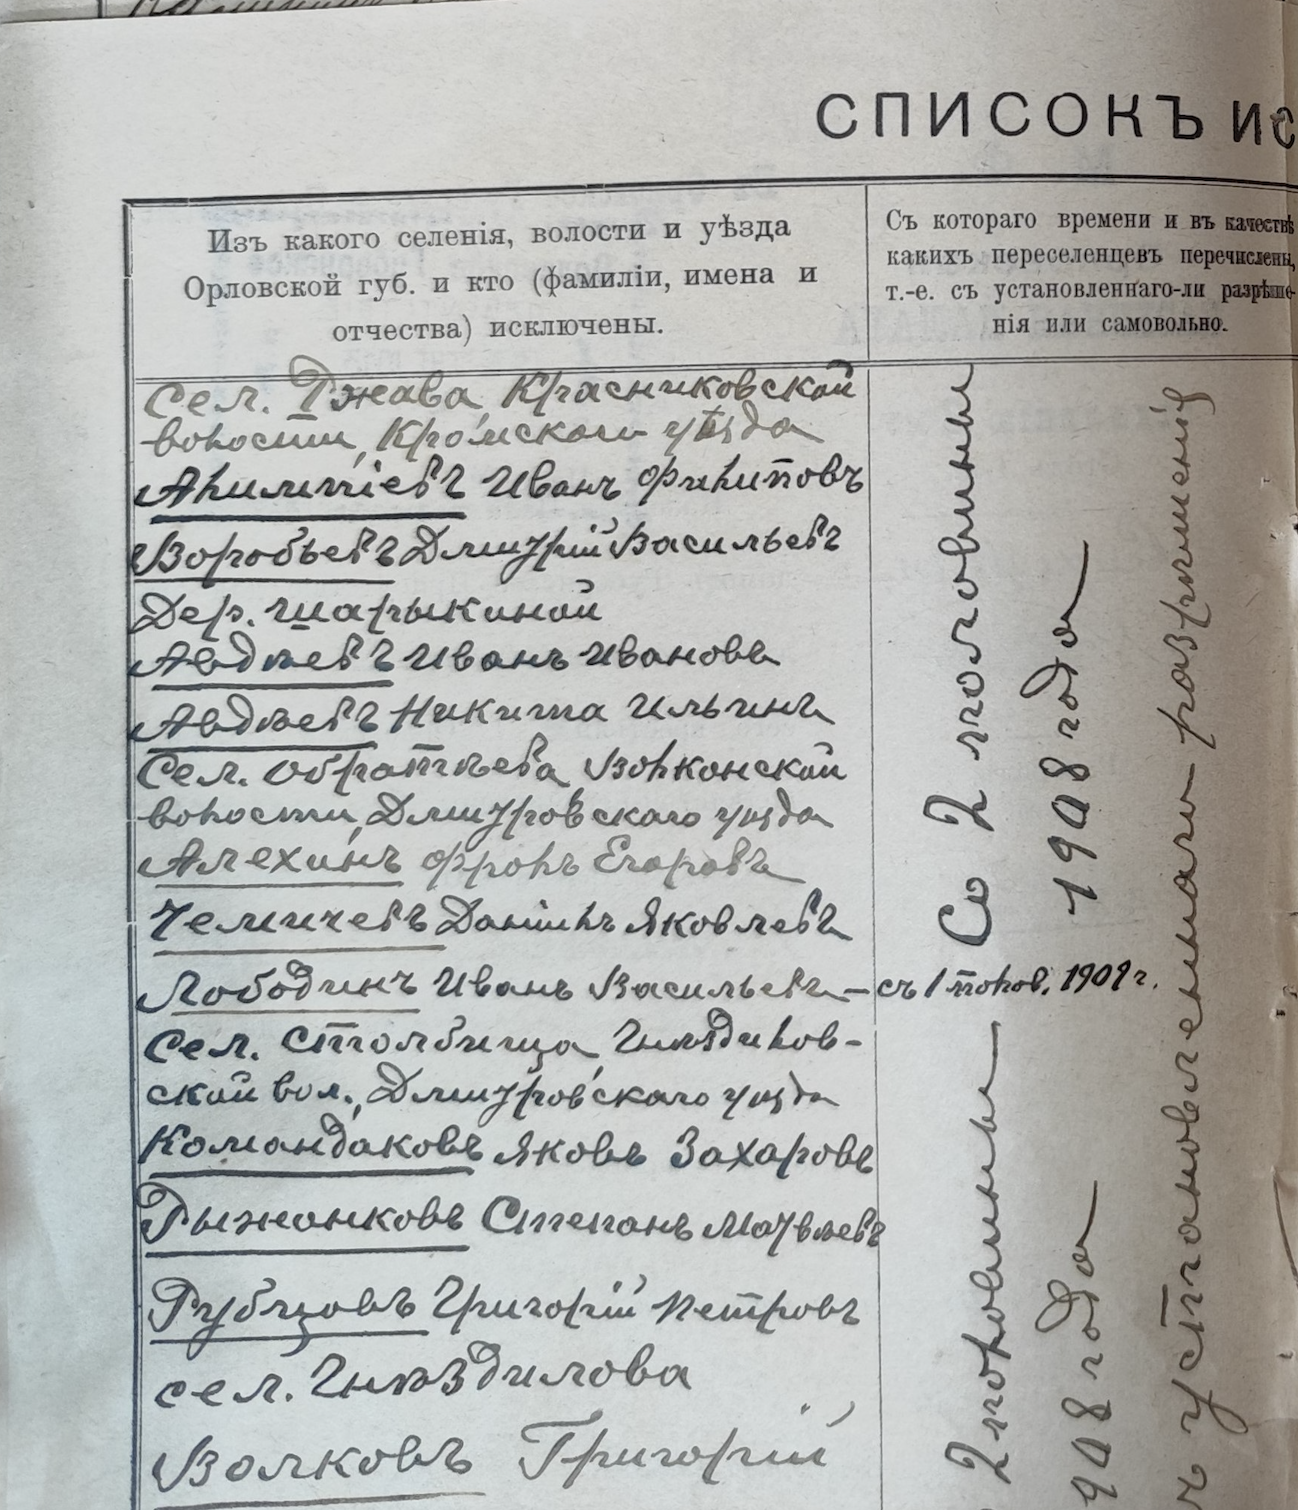 СПИСОКЪ ИС
Изъ какого селенія, волости и уѣзда
Орловской губ. и кто (фамиліи, имена и
отчества) исключены.
Съ котораго времени и въ качествѣ
какихъ переселенцевъ перечислены,
т.-е. съ установленнаго-ли разрѣше-
нія или самовольно.
Сел. Ржава, Красниковской
волости, Кромскаго уѣзда
Алимпіевъ Иванъ Филиповъ
Воробьевъ Дмитрій Васильевъ
Дер. Шарыкиной
Авдѣевъ Иванъ Ивановъ
Авдѣевъ Никита Ильинъ
Сел. Обратѣева, Волконской
волости, Дмитровскаго уѣзда
Алехинъ Фролъ Егоровъ
Чемичевъ Даніилъ Яковлевъ
Лободинъ Иванъ Васильевъ – съ 1 полов. 1909 г.
Сел. Столбища, Гнѣздилов-
ской вол., Дмитровскаго уѣзда
Командаковъ Яковъ Захаровъ
Рыжанковъ Степанъ Матвѣевъ
Рубцовъ Григорій Петровъ
сел. Гнѣздилова
Волковъ Григорій
Со 2 половины
1908 года
2 половины
908 года
ъ установленнаго разрѣшенія